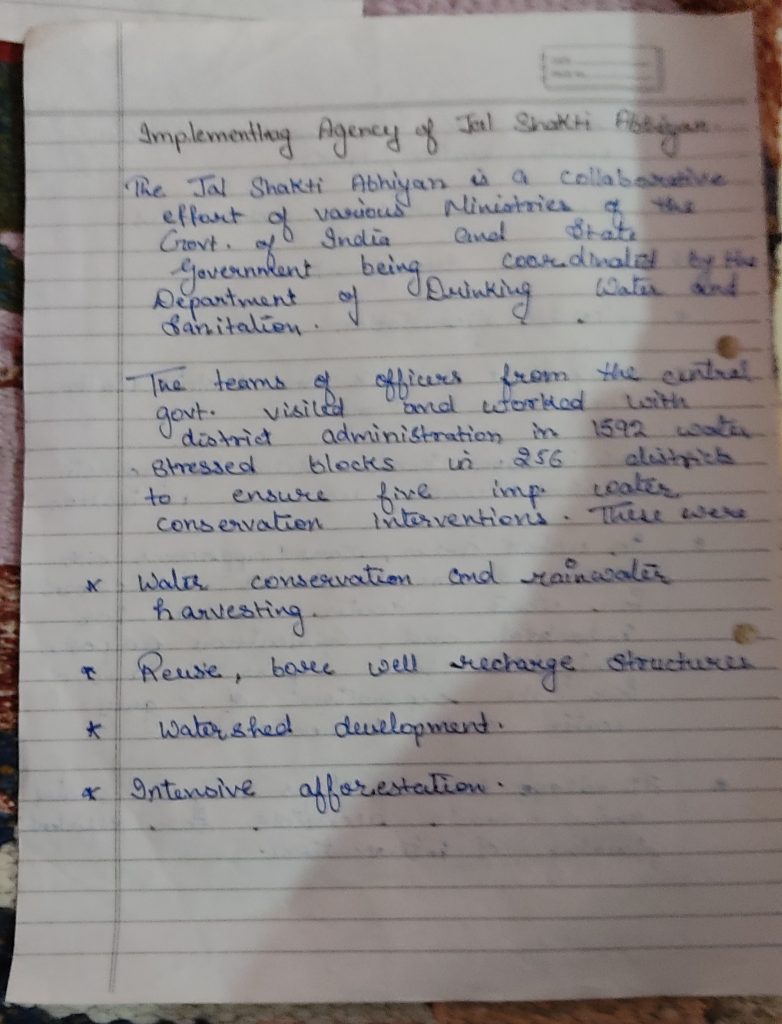 Implementing Agency of Jal Shakti Abhiyan
The Jal Shakti Abhiyan is a collaborative
effort of various Ministries of the
Govt. of India and State
Government being coordinated by the
Department of Drinking Water and
Sanitation.
The teams of officers from the central
govt. visited and worked with
district administration in 1592 water
stressed blocks in 256 districts
to ensure five imp. water
conservation interventions. These were
* Water conservation and rainwater
harvesting.
* Reuse, bore well recharge structures
* Watershed development.
* Intensive afforestation.